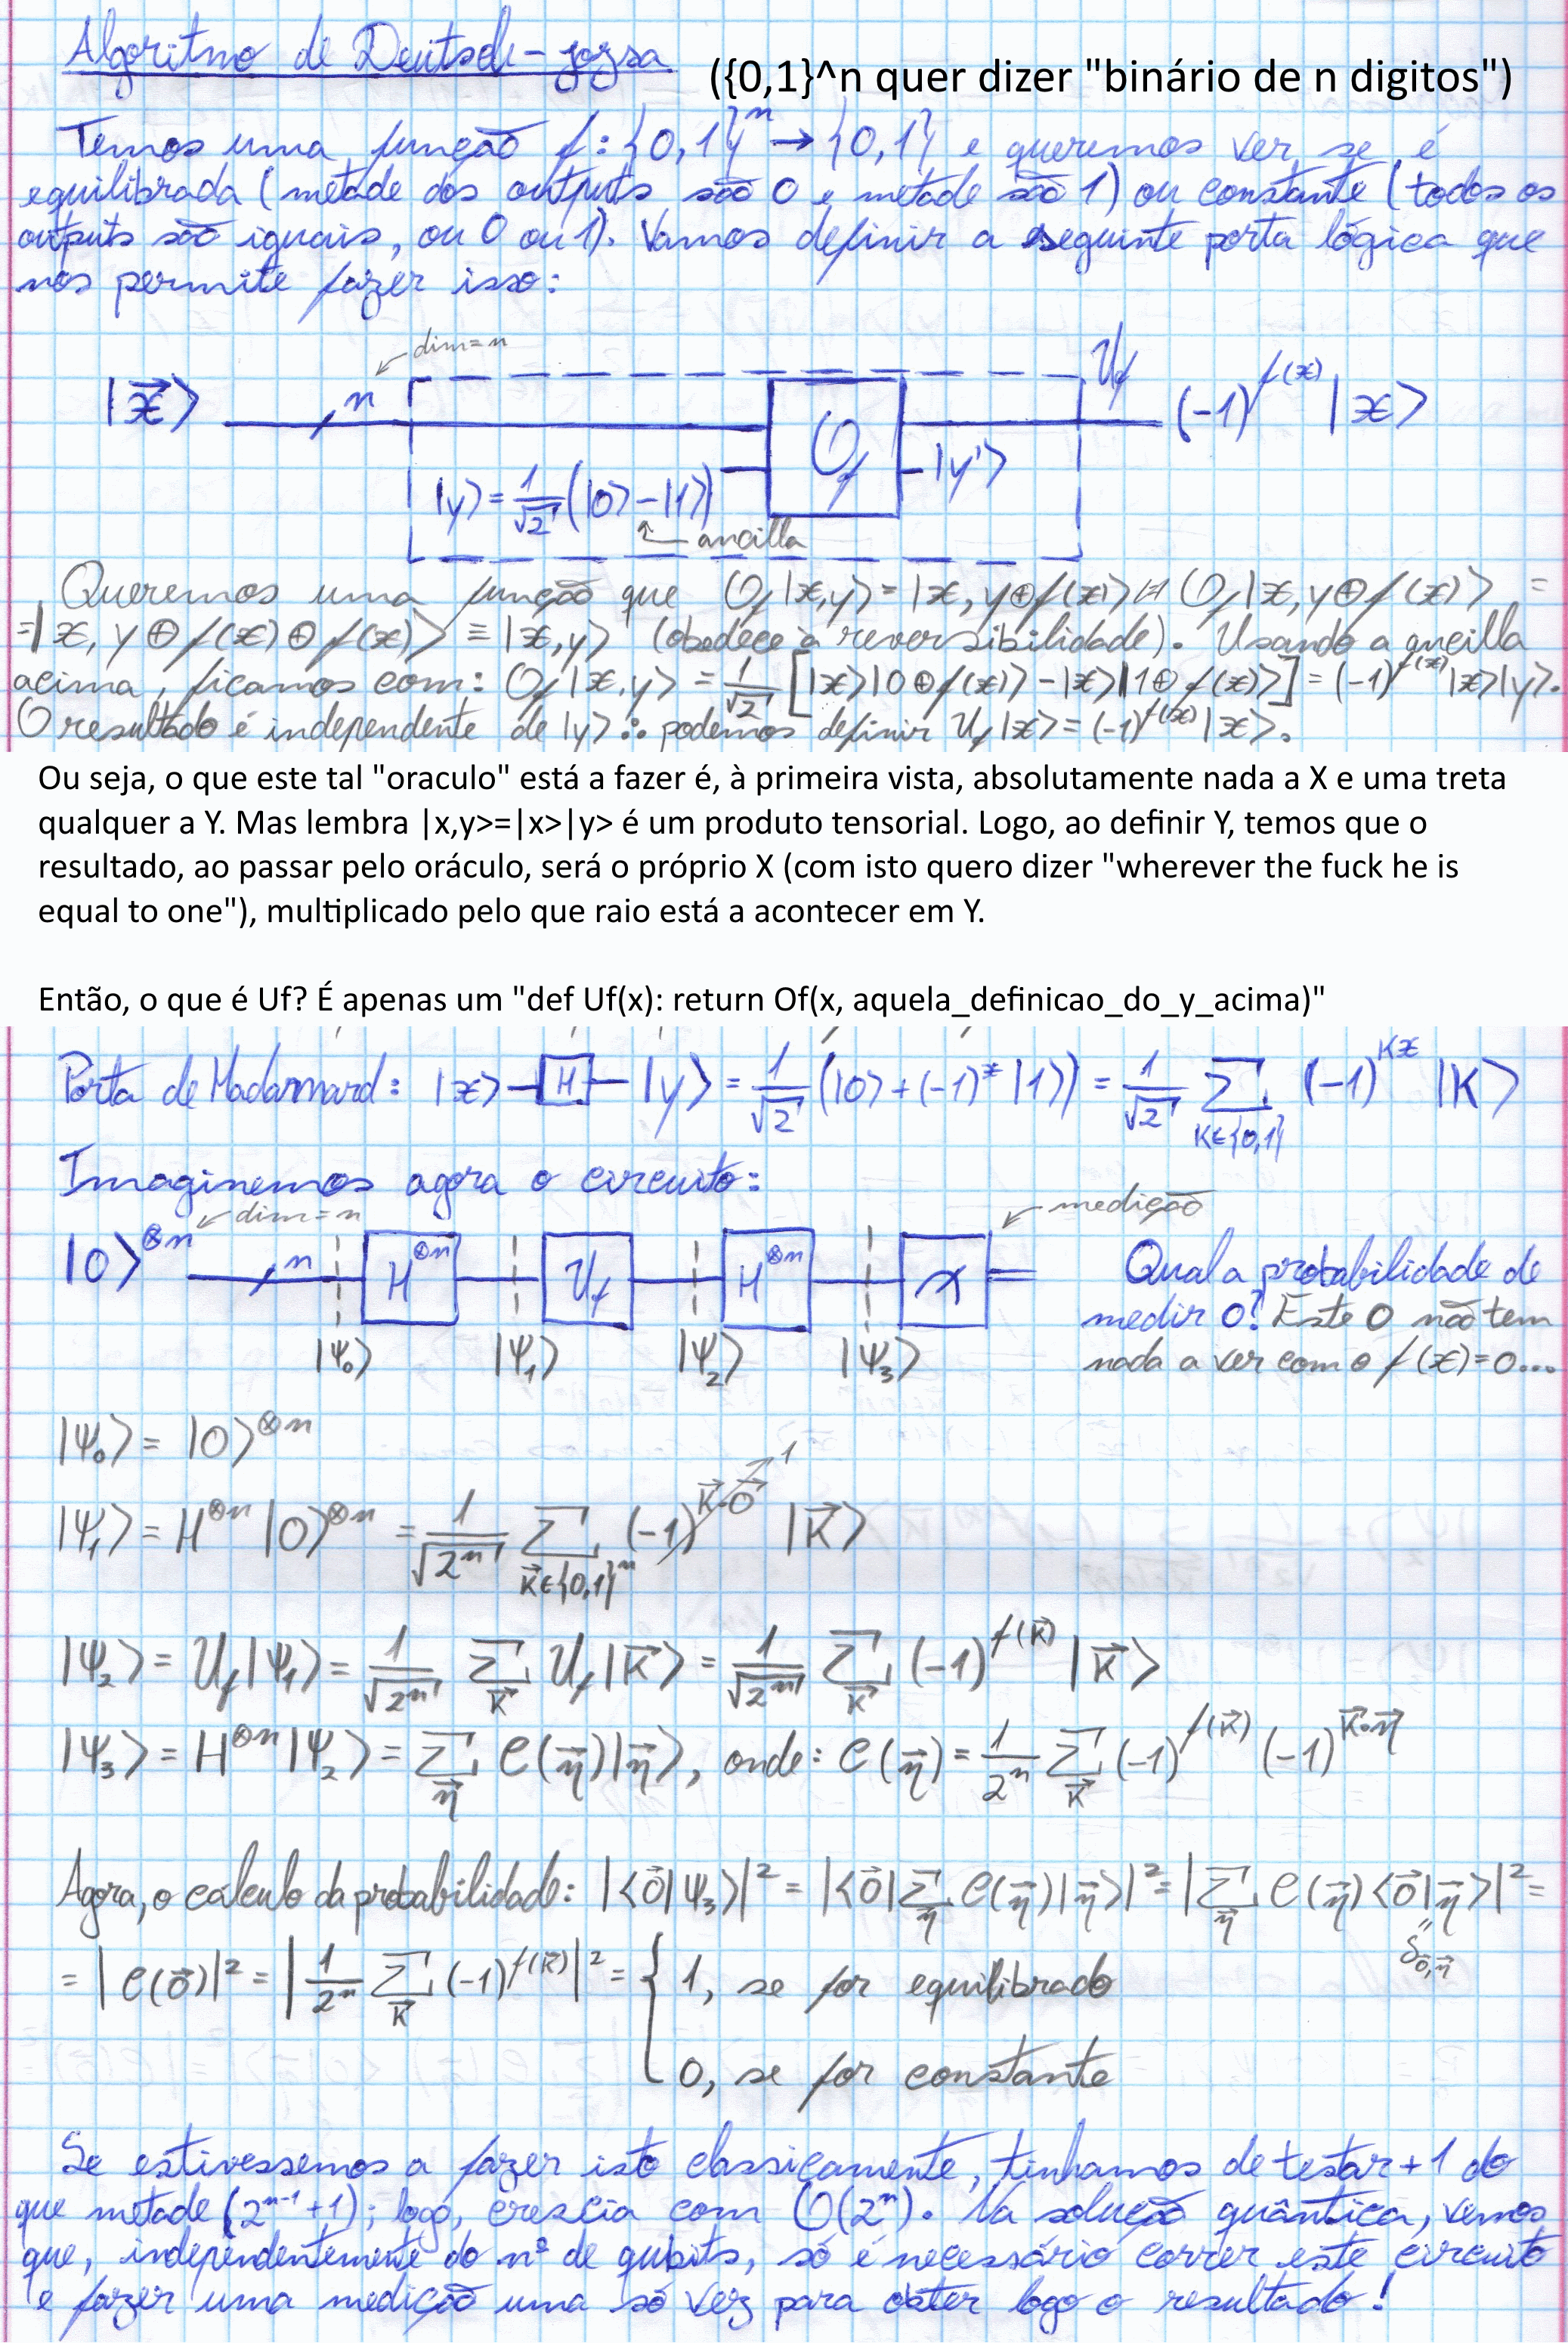 Algoritmo de Deutsch-Jozsa ({0,1}^n quer dizer "binário de n digitos")
Temos uma função f:{0,1}ⁿ → {0,1} e queremos ver se é
equilibrada (metade dos outputs são 0 e metade são 1) ou constante (todos os
outputs são iguais, ou 0 ou 1). Vamos definir a seguinte porta lógica que
nos permite fazer isso:
dim=n
|x⃗⟩ n U_f (-1)^f(x) |x⟩
O_f
|y⟩ = 1/√2 (|0⟩ - |1⟩) |y'⟩
ancilla
Queremos uma função que O_f|x,y⟩ = |x, y⊕f(x)⟩ O_f|x, y⊕f(x)⟩ =
=|x, y ⊕ f(x) ⊕ f(x)⟩ ≡ |x,y⟩ (obedece à reversibilidade). Usando a ancilla
acima, ficamos com: O_f|x,y⟩ = 1/√2 [|x⟩|0⊕f(x)⟩ - |x⟩|1⊕f(x)⟩] = (-1)^f(x)|x⟩|y⟩.
O resultado é independente de |y⟩ ∴ podemos definir U_f|x⟩ = (-1)^f(x)|x⟩.
Ou seja, o que este tal "oraculo" está a fazer é, à primeira vista, absolutamente nada a X e uma treta
qualquer a Y. Mas lembra |x,y>=|x>|y> é um produto tensorial. Logo, ao definir Y, temos que o
resultado, ao passar pelo oráculo, será o próprio X (com isto quero dizer "wherever the fuck he is
equal to one"), multiplicado pelo que raio está a acontecer em Y.
Então, o que é Uf? É apenas um "def Uf(x): return Of(x, aquela_definicao_do_y_acima)"
Porta de Hadarmard: |x⟩ H |y⟩ = 1/√2 (|0⟩ + (-1)^x |1⟩) = 1/√2 Σ_{K∈{0,1}} (-1)^{Kx} |K⟩
Imaginemos agora o circuito:
dim=n medição
|0⟩^⊗n n H^⊗n U_f H^⊗n Qual a probabilidade de
medir 0? Este 0 não tem
|Ψ₀⟩ |Ψ₁⟩ |Ψ₂⟩ |Ψ₃⟩ nada a ver com o f(x)=0...
|Ψ₀⟩ = |0⟩^⊗n
|Ψ₁⟩ = H^⊗n |0⟩^⊗n = 1/√2ⁿ Σ_{K⃗∈{0,1}ⁿ} (-1)^{K⃗·0⃗} 1 |K⃗⟩
|Ψ₂⟩ = U_f|Ψ₁⟩ = 1/√2ⁿ Σ_K⃗ U_f|K⃗⟩ = 1/√2ⁿ Σ_K⃗ (-1)^{f(K⃗)} |K⃗⟩
|Ψ₃⟩ = H^⊗n|Ψ₂⟩ = Σ_η⃗ C(η⃗)|η⃗⟩, onde: C(η⃗) = 1/2ⁿ Σ_K⃗ (-1)^{f(K⃗)} (-1)^{K⃗·η⃗}
Agora, o cálculo da probabilidade: |⟨0⃗|Ψ₃⟩|² = |⟨0⃗|Σ_η⃗ C(η⃗)|η⃗⟩|² = |Σ_η⃗ C(η⃗)⟨0⃗|η⃗⟩|² =
δ_{0⃗,η⃗}
= |C(0⃗)|² = |1/2ⁿ Σ_K⃗ (-1)^{f(K⃗)}|² = { 1, se for equilibrado
0, se for constante
Se estivessemos a fazer isto classicamente, tinhamos de testar +1 do
que metade (2ⁿ⁻¹+1); logo, crescia com O(2ⁿ). Na solução quântica, vemos
que, independentemente do nº de qubits, só é necessário correr este circuito
e fazer uma medição uma só vez para obter logo o resultado!